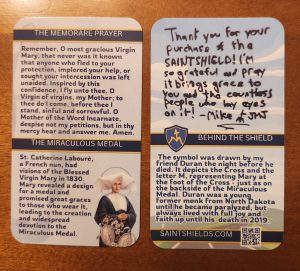 THE MEMORARE PRAYER
Remember, O most gracious Virgin
Mary, that never was it known
that anyone who fled to your
protection, implored your help, or
sought your intercession was left
unaided. Inspired by this
confidence, I fly unto thee, O
Virgin of virgins, my Mother; to
thee do I come, before thee I
stand, sinful and sorrowful. O
Mother of the Word Incarnate,
despise not my petitions, but in thy
mercy hear and answer me. Amen.
THE MIRACULOUS MEDAL
St. Catherine Labouré,
a French nun, had
visions of the Blessed
Virgin Mary in 1830.
Mary revealed a design
for a medal and
promised great graces
to those who wear it,
leading to the creation
and widespread
devotion to the
Miraculous Medal.
Thank you for your
purchase of the
SAINTSHIELD! I'm
so grateful and pray
it brings grace to
you and the countless
people who lay eyes
on it! - Mike
BEHIND THE SHIELD
The symbol was drawn by my
friend Duran the night before he
died. It depicts the Cross and the
letter M, representing Mary at
the foot of the Cross - just as on
the backside of the Miraculous
Medal. Duran was a young
former monk from North Dakota
who became paralyzed, but
always lived with full joy and
faith up until his death in 2019
SAINTSHIELDS.COM